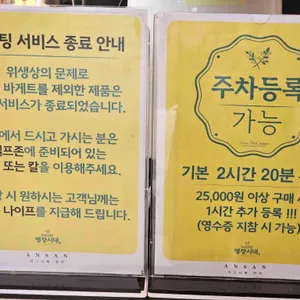 팅 서비스 종료 안내
위생상의 문제로
바게트를 제외한 제품은
서비스가 종료되었습니다.
에서 드시고 가시는 분은
프존에 준비되어 있는
또는 칼을 이용해주세요.
시 원하시는 고객님께는
나이프를 지급해 드립니다.
명장시대
ANSAN
주차등록
가능
기본 2시간 20분
25,000원 이상 구매
1시간 추가 등록 !!!
(영수증 지참 시 가능)
명장시대
ANSAN